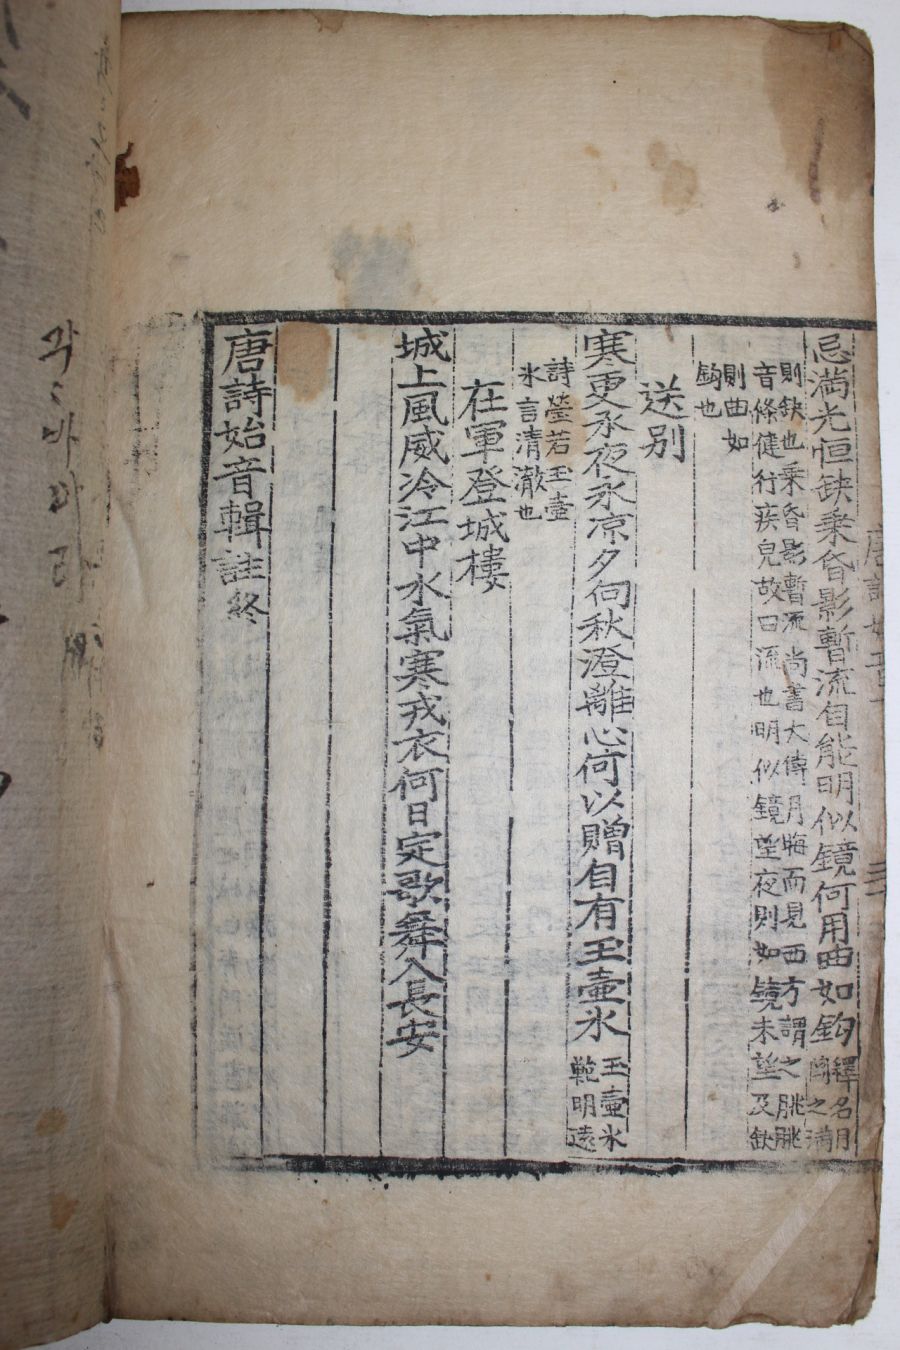 忌満光恒缺乗昏影暫流自能明似鏡何用曲如鉤釋名月
闕之满
則缺也乗昏影暫流尚書大傳月晦而見西方謂之朓朓
音條健行疾皃故曰流也明似鏡望夜則如鏡未望及缺
則曲如
鉤也
送别
寒更承夜永凉夕向秋澄離心何以贈自有玉壷氷玉壷氷
範明遠
詩瑩若玉壷
氷言清澈也
在軍登城樓
城上風威冷江中水氣寒戎衣何日定歌舞入長安
唐詩始音輯註終